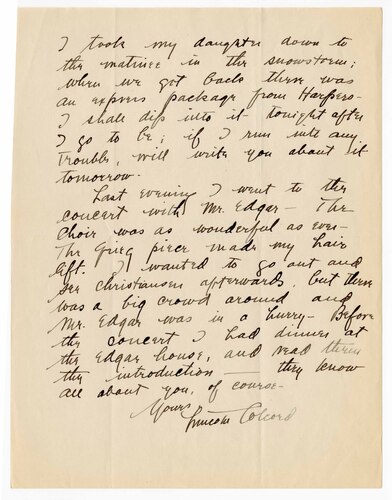 I took my daughter down to
the matinee in the snowstorm;
when we got back there was
an express package from Harpers-
I shall dip into it tonight after
I go to be; if I run into any
trouble, will write you about it
tomorrow.
Last evening I went to the
concert with Mr. Edgar - The
Choir was as wonderful as ever-
The Grieg piece made my hair
lift. I wanted to go out and
see Christiansen afterwards, but there
was a big crowd around and
Mr. Edgar was in a hurry- Before
the concert I had dinner at
the Edgar house, and read them
the introduction - they know
all about you, of course-
Yours
Lincoln Colcord